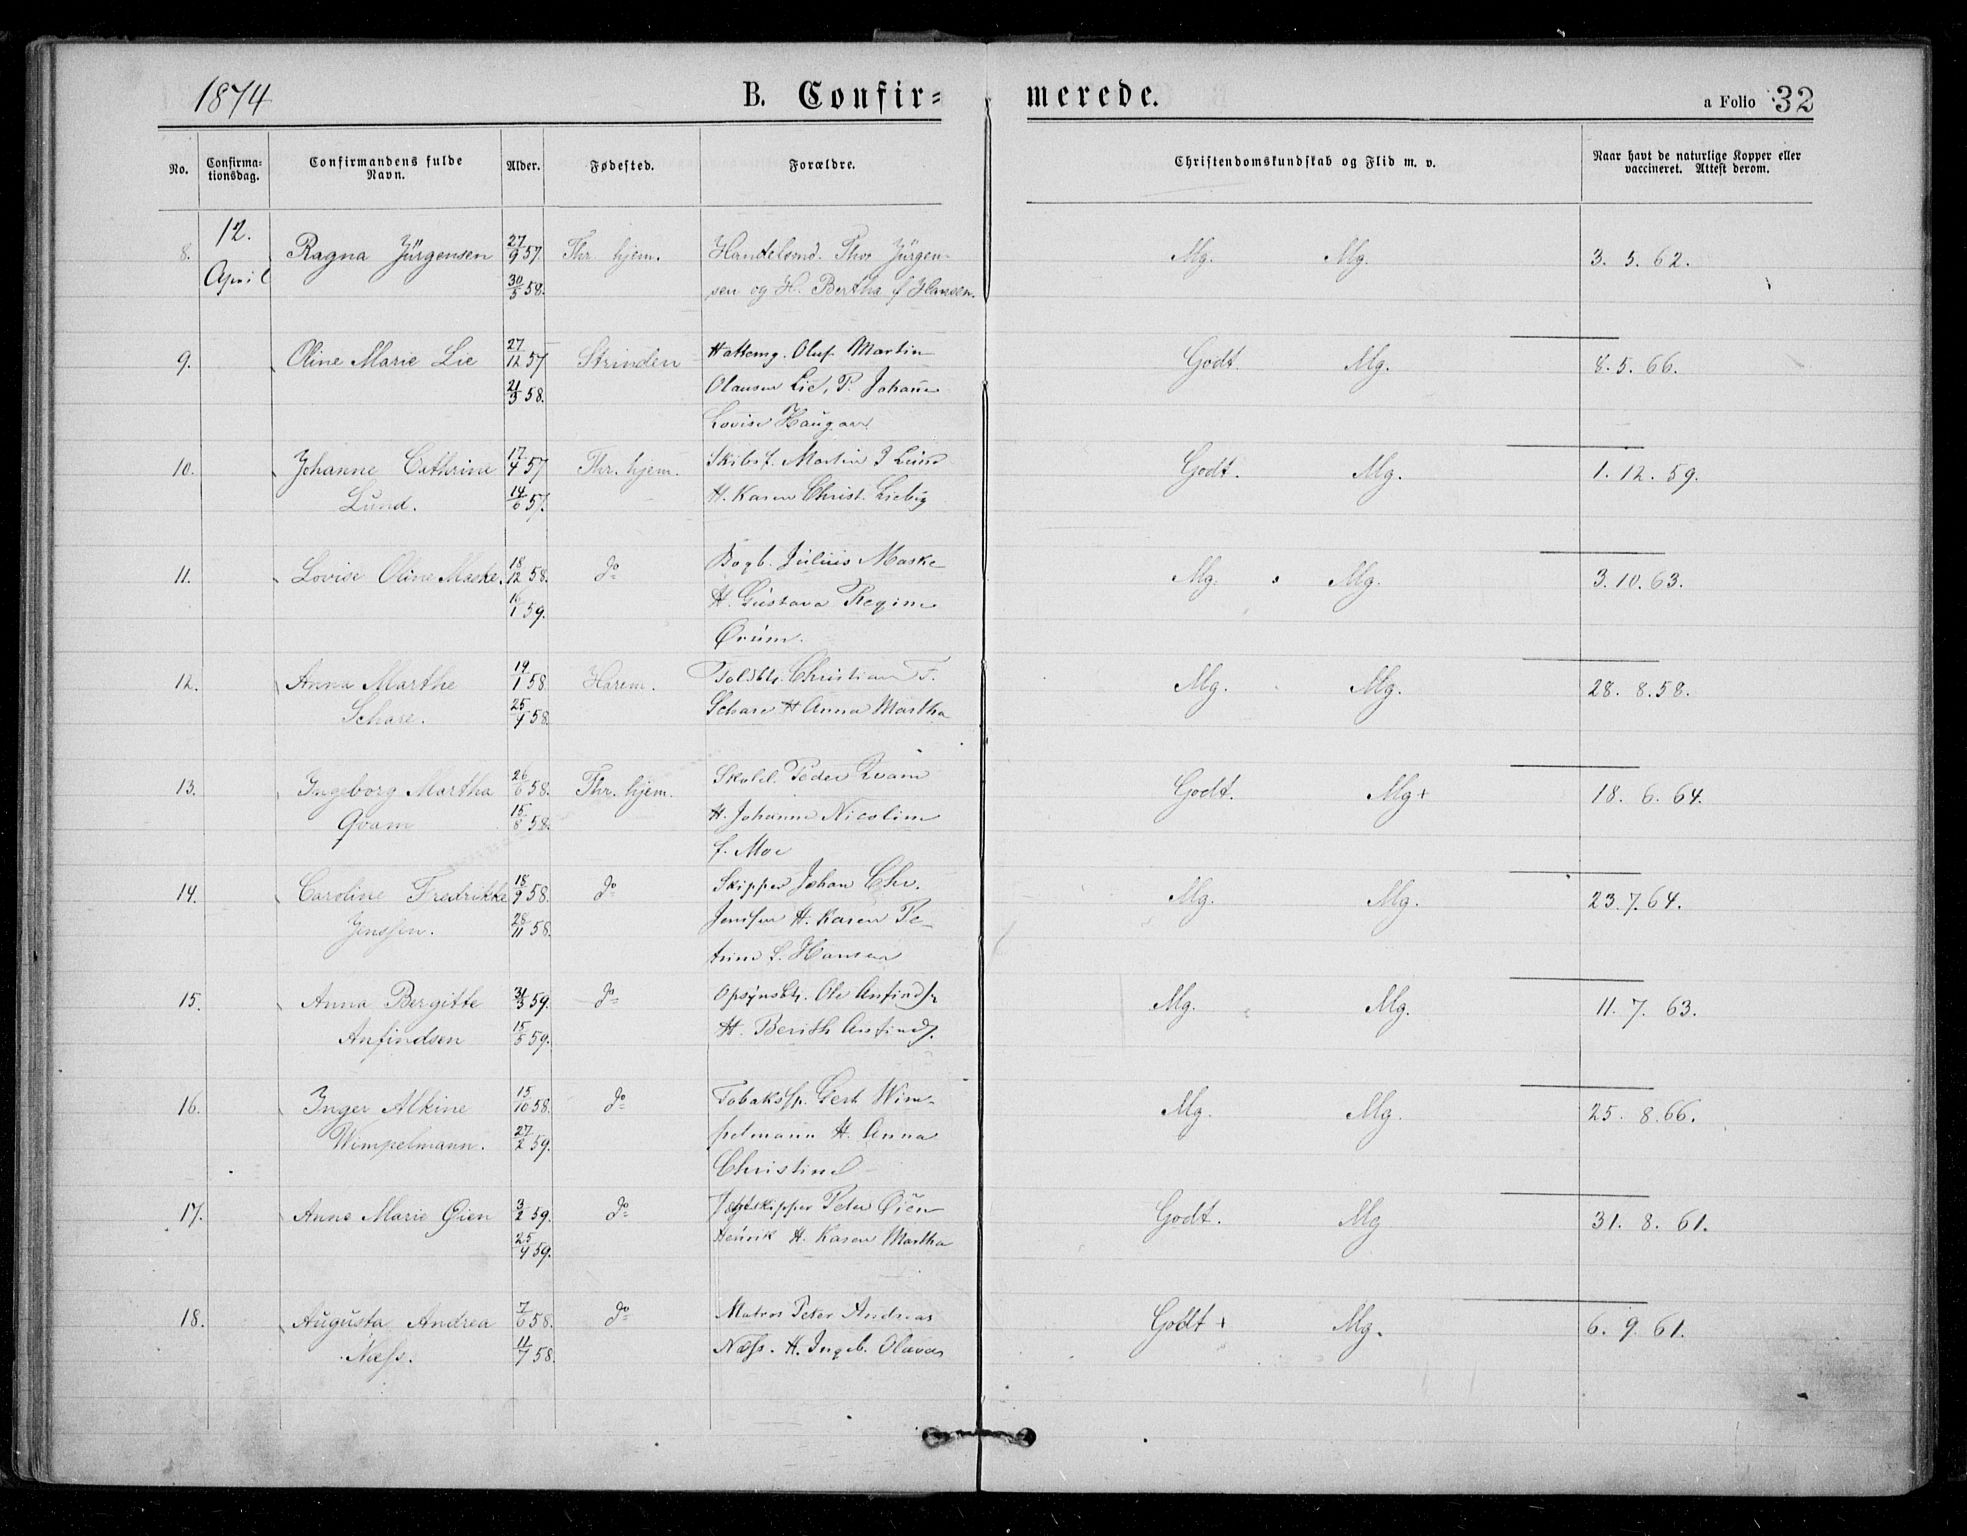 1874 B. Confir= merede. a Folio 32
No. Confirma-tionsdag. Confirmandens fulde Navn. Alder. Fødested. Forældre. Christendomskundskab og Flid m. v. Naar havt de naturlige Kopper eller vaccineret. Attest derom.
12.
8. Ragna Jürgensen 27/9 57. Thr. hjem. Handelsmd. Thos Jürgen- Mg. Mg. 3. 5. 62.
April 30/5 58. sen og H. Bertha f Hansen.
9. Oline Marie Lie 27/12 57 Strinden Hattemg. Oluf Martin Godt. Mg. 8. 5. 66.
21/3 58. Olausen Lie, P. Johane
Lovise Haugan
10. Johanne Cathrine 17/4 57 Thr. hjem. Skibsf. Martin J Lund Godt. Mg. 1. 12. 59.
Lund. 14/6 57. H. Karen Christ. Liebig
11. Lovise Oline Maske. 18/12 58. do Bogb. Julius Maske Mg. Mg. 3. 10. 63.
16/1 59. H. Gustava Regine
Ørum.
12. Anna Marthe 19/1 58. Harem. Toldbtj. Christian F. Mg. Mg. 28. 8. 58.
Schare. 25/4 58. Schare H Anna Martha
13. Ingeborg Martha 26/6 58. Thr. hjem. Skolel. Peder Kvam Godt. Mg+ 18. 6. 64.
Qvam 15/8 58. H. Johanne Nicoline
f. Moe
14. Caroline Fredrikke 18/9 58. do Skipper Johan Chr. Mg. Mg. 23. 7. 64.
Jenssen. 28/11 58. Jenssen H. Karen Pe-
trine f. Hansen
15. Anna Bergitte 31/3 59. do Opsynsbtj. Ole Anfinds Mg. Mg. 11. 7. 63.
Anfindsen 15/5 59. H. Berith Anfinds.
16. Inger Alkine 15/10 58. do Tobakssp. Gert Wim- Mg. Mg. 25. 8. 66.
Wimpelmann. 27/2 59. pelmann H. Anna
Christine
17. Anne Marie Øien 3/2 59. do Jægtskipper Peter Øien Godt. Mg 31. 8. 61.
25/4 59. Henrik H. Karen Martha
18. Augusta Andrea 7/6 58. do Matros Peter Andreas Godt + Mg. 6. 9. 61.
Næss. 11/7 58. Næss. H. Ingeb. Olava